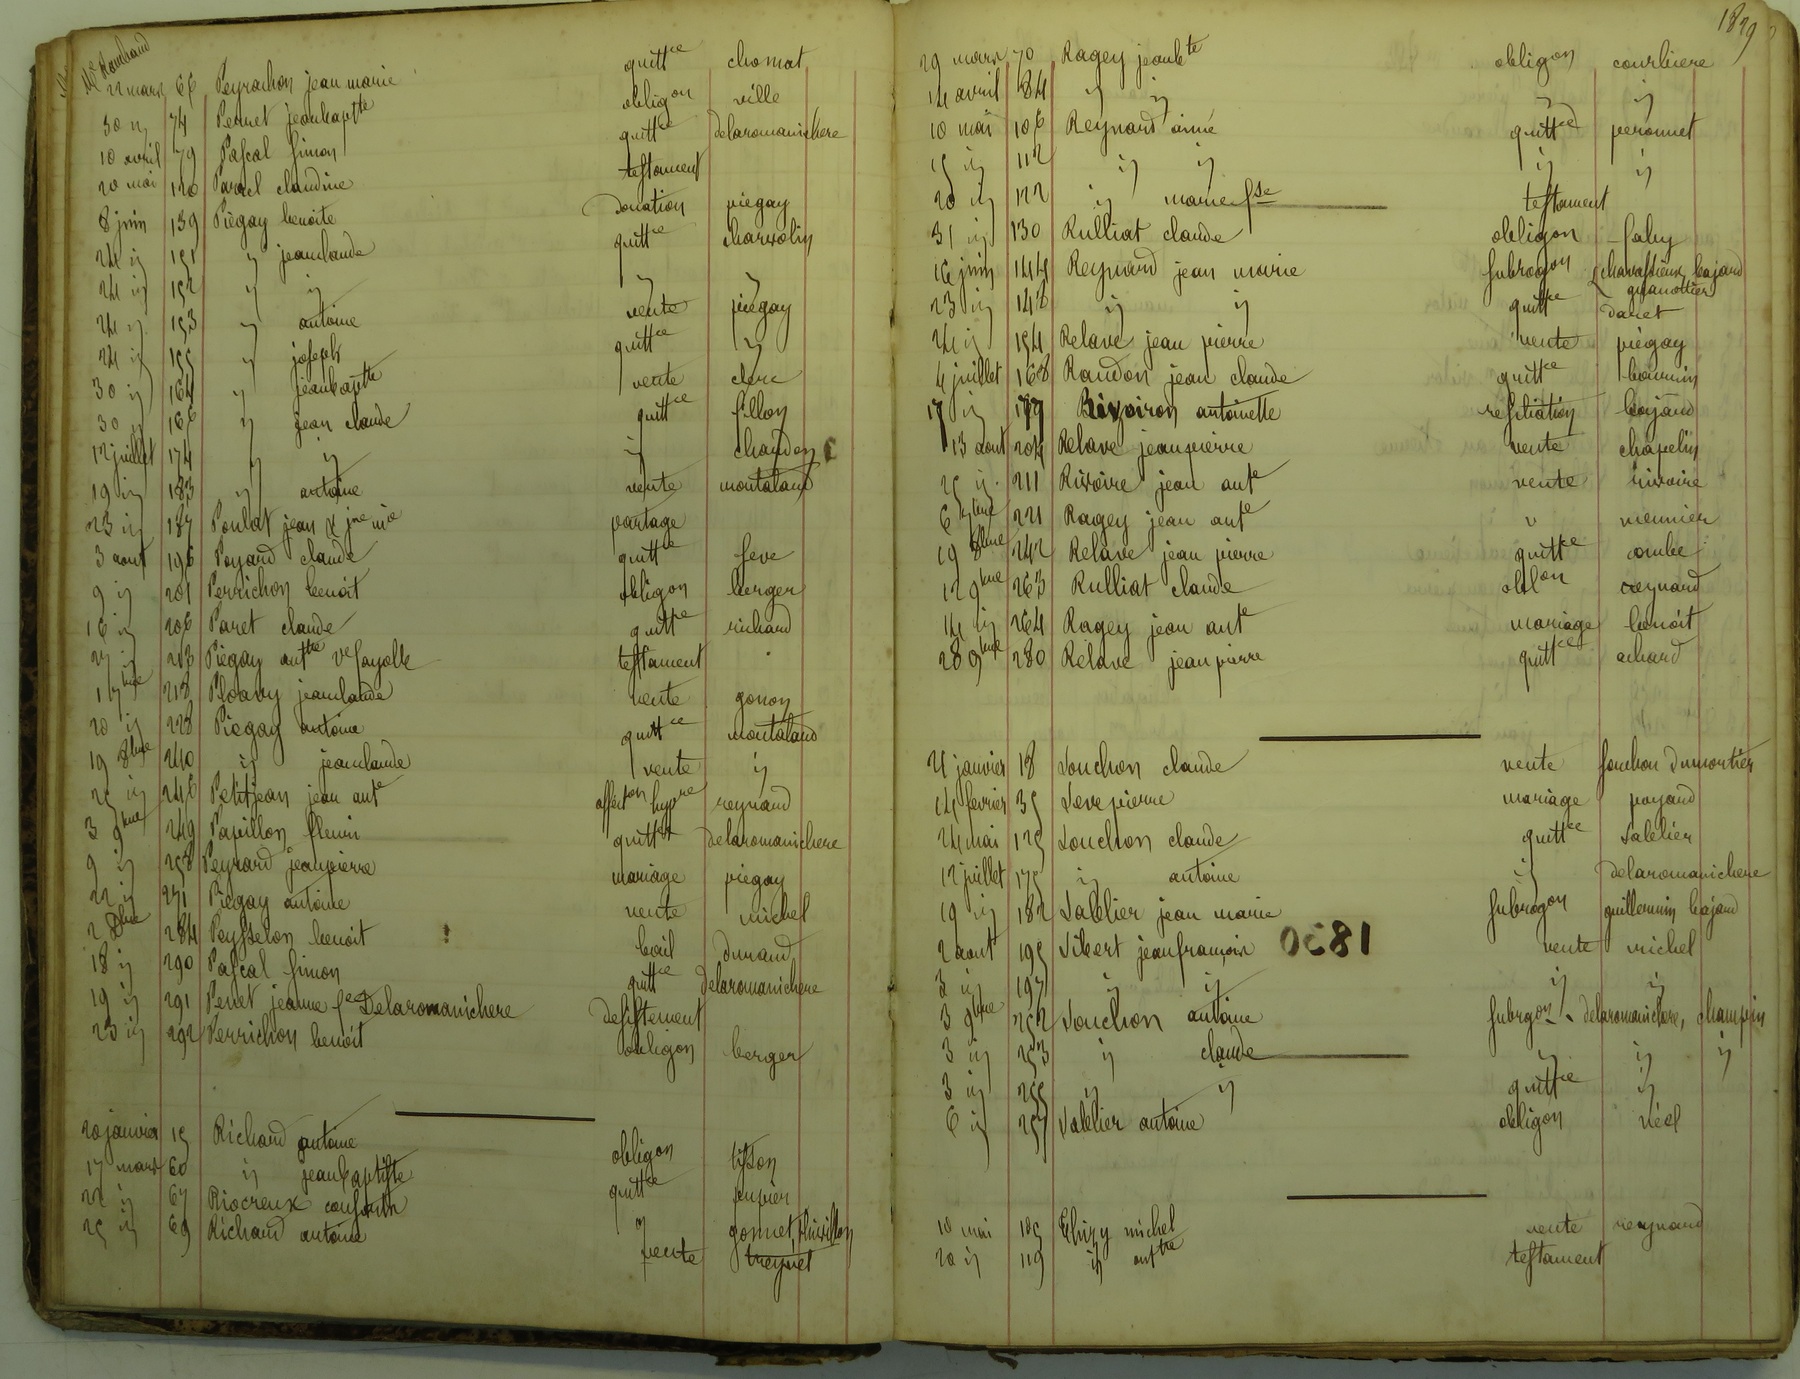 Me Rambaud
22 mars 66 Peyrachon jean marie quittce chomat
30 ij 74 Penet jeanbaptte obligon ville
10 avril 79 Pascal simon quittce delaromanichere
20 mai 120 Parrel claudine testament
8 juin 139 Piégay benoite donation piegay
24 ij 151 ij jeanclaude quittce charvolin
24 ij 152 ij ij ij ij
24 ij 153 ij antoine vente piégay
24 ij 155 ij joseph quittce ij
30 ij 164 ij jeanbaptte vente clerc
30 ij 166 ij jean claude quittce fillon
12 juillet 174 ij ij ij chaudon
19 ij 183 ij antoine vente montaland
23 ij 187 Poulat jean & jne mie partage
3 aout 196 Poyard claude quittce seve
9 ij 201 Perrichon benoit obligon berger
16 ij 206 Paret claude quittce richard
27 ij 213 Piégay antte ve fayolle testament
1 7bre 218 jeanclaude vente gonon
20 ij 228 Piégay antoine quittce montaland
19 8bre 240 ij jeanclaude vente ij
25 ij 246 Petitjean jean ante affecton hypre reynard
3 9bre 249 Papillon fleuri quittce delaromanichere
9 ij 258 Peyrard jeanpierre mariage piegay
22 ij 271 Piégay antoine vente michel
2 Xbre 284 Peysselon benoit bail durand
18 ij 290 Pascal simon quittce delaromanichere
19 ij 291 Penet jeanne fe Delaromanichere desistement
23 ij 292 Perrichon benoit obligon berger
20 janvier 15 Richard antoine obligon tisson
17 mars 60 ij jeanbaptiste quittce jupier
22 ij 67 Riocreux ij gonnet, thivillon
25 ij 69 Richard antoine vente treynet
1829
29 mars 70 Ragey jeanbte obligon courbiere
14 avril 84 ij ij ij ij
10 mai 106 Reynard aimé quittce peronnet
15 ij 112 ij ij ij ij
20 ij 122 ij marie fse testament
31 ij 130 Rulliat claude obligon faby
16 juin 144 Reynard jean marie subrogon chavassieux, bajard
granottier
23 ij 148 ij ij quittce danet
24 ij 154 Relave jean pierre vente piégay
4 juillet 168 Raudon jean claude quittce bournin
17 ij 179 Rivoiron antoinette resiliation bajard
13 aout 204 Relave jeanpierre vente chapelin
25 ij 211 Rivoire jean ante vente rivoire
6 7bre 221 Ragey jean ante ij meunier
19 8bre 242 Relave jean pierre quittce combe
12 9bre 263 Rulliat claude oblon reynard
14 ij 264 Ragey jean ante mariage benoit
28 9bre 280 Relave jeanpierre quittce achard
21 janvier 18 Souchon claude vente souchon dumortier
14 fevrier 35 Seve pierre mariage poyard
24 mai 125 Souchon claude quittce Sablier
12 juillet 175 ij antoine ij delaromanichere
19 ij 182 Sablier jean marie subrogon guillermin bajard
2 aout 195 Sibert jeanfrançois vente michel
1830
3 ij 197 ij ij ij ij
3 9bre 252 Souchon antoine subrgon delaromanichere, champin
3 ij 253 ij claude ij ij ij
3 ij 255 ij ij quittce ij
6 ij 257 Sablier antoine obligon néel
10 mai 105 michel vente reynard
20 ij 119 ij antte testament